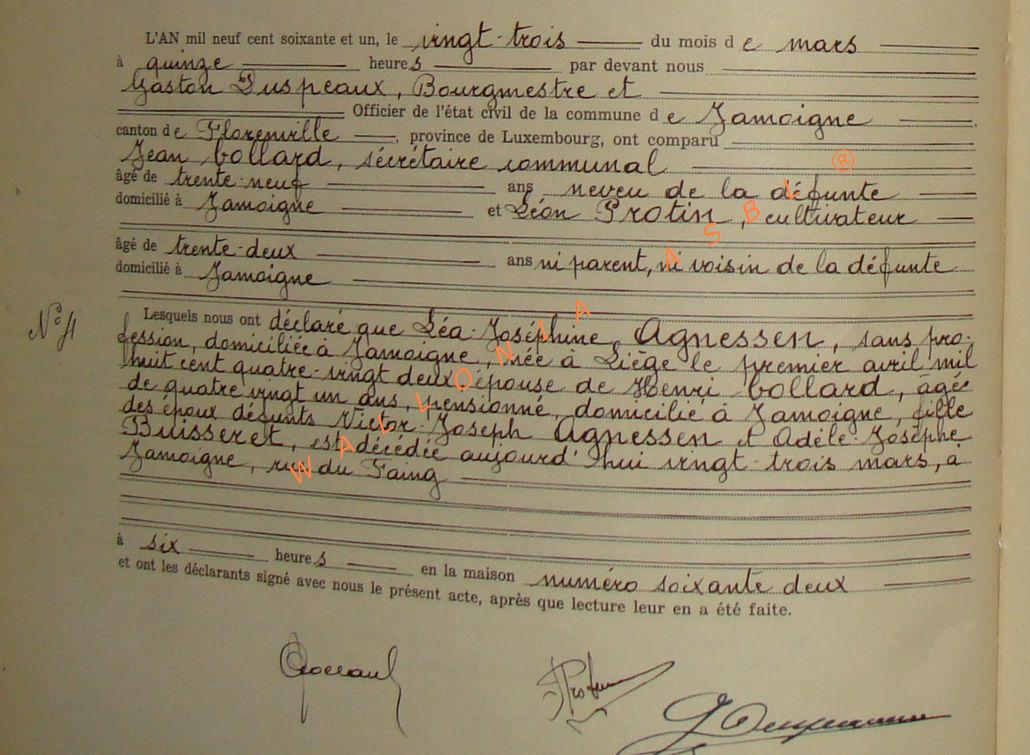 L'AN mil neuf cent soixante et un, le vingt-trois du mois de mars
à quinze heures par devant nous
Gaston Duspeaux, Bourgmestre et
Officier de l'état civil de la commune de Jamoigne
canton de Florenville, province de Luxembourg, ont comparu
Jean Collard, sécrétaire communal
âgé de trente-neuf ans neveu de la défunte
domicilié à Jamoigne et Léon Protin, cultivateur
âgé de trente-deux ans ni parent, ni voisin de la défunte
domicilié à Jamoigne
N° 4
Lesquels nous ont déclaré que Léa-Joséphine, Agnessen, sans pro-
fession, domiciliée à Jamoigne, née à Liège le premier avril mil
huit cent quatre-vingt deux, épouse de Henri Collard, agé
de quatre vingt un ans, pensionné, domicilié à Jamoigne, fille
des époux défunts Victor-Joseph Agnessen et Adèle-Josèphe
Buisseret, est décédée aujourd'hui vingt-trois mars, à
Jamoigne, rue du Faing
à six heures en la maison numéro soixante deux
et ont les déclarants signé avec nous le présent acte, après que lecture leur en a été faite.
WALLONIA ASBL ®